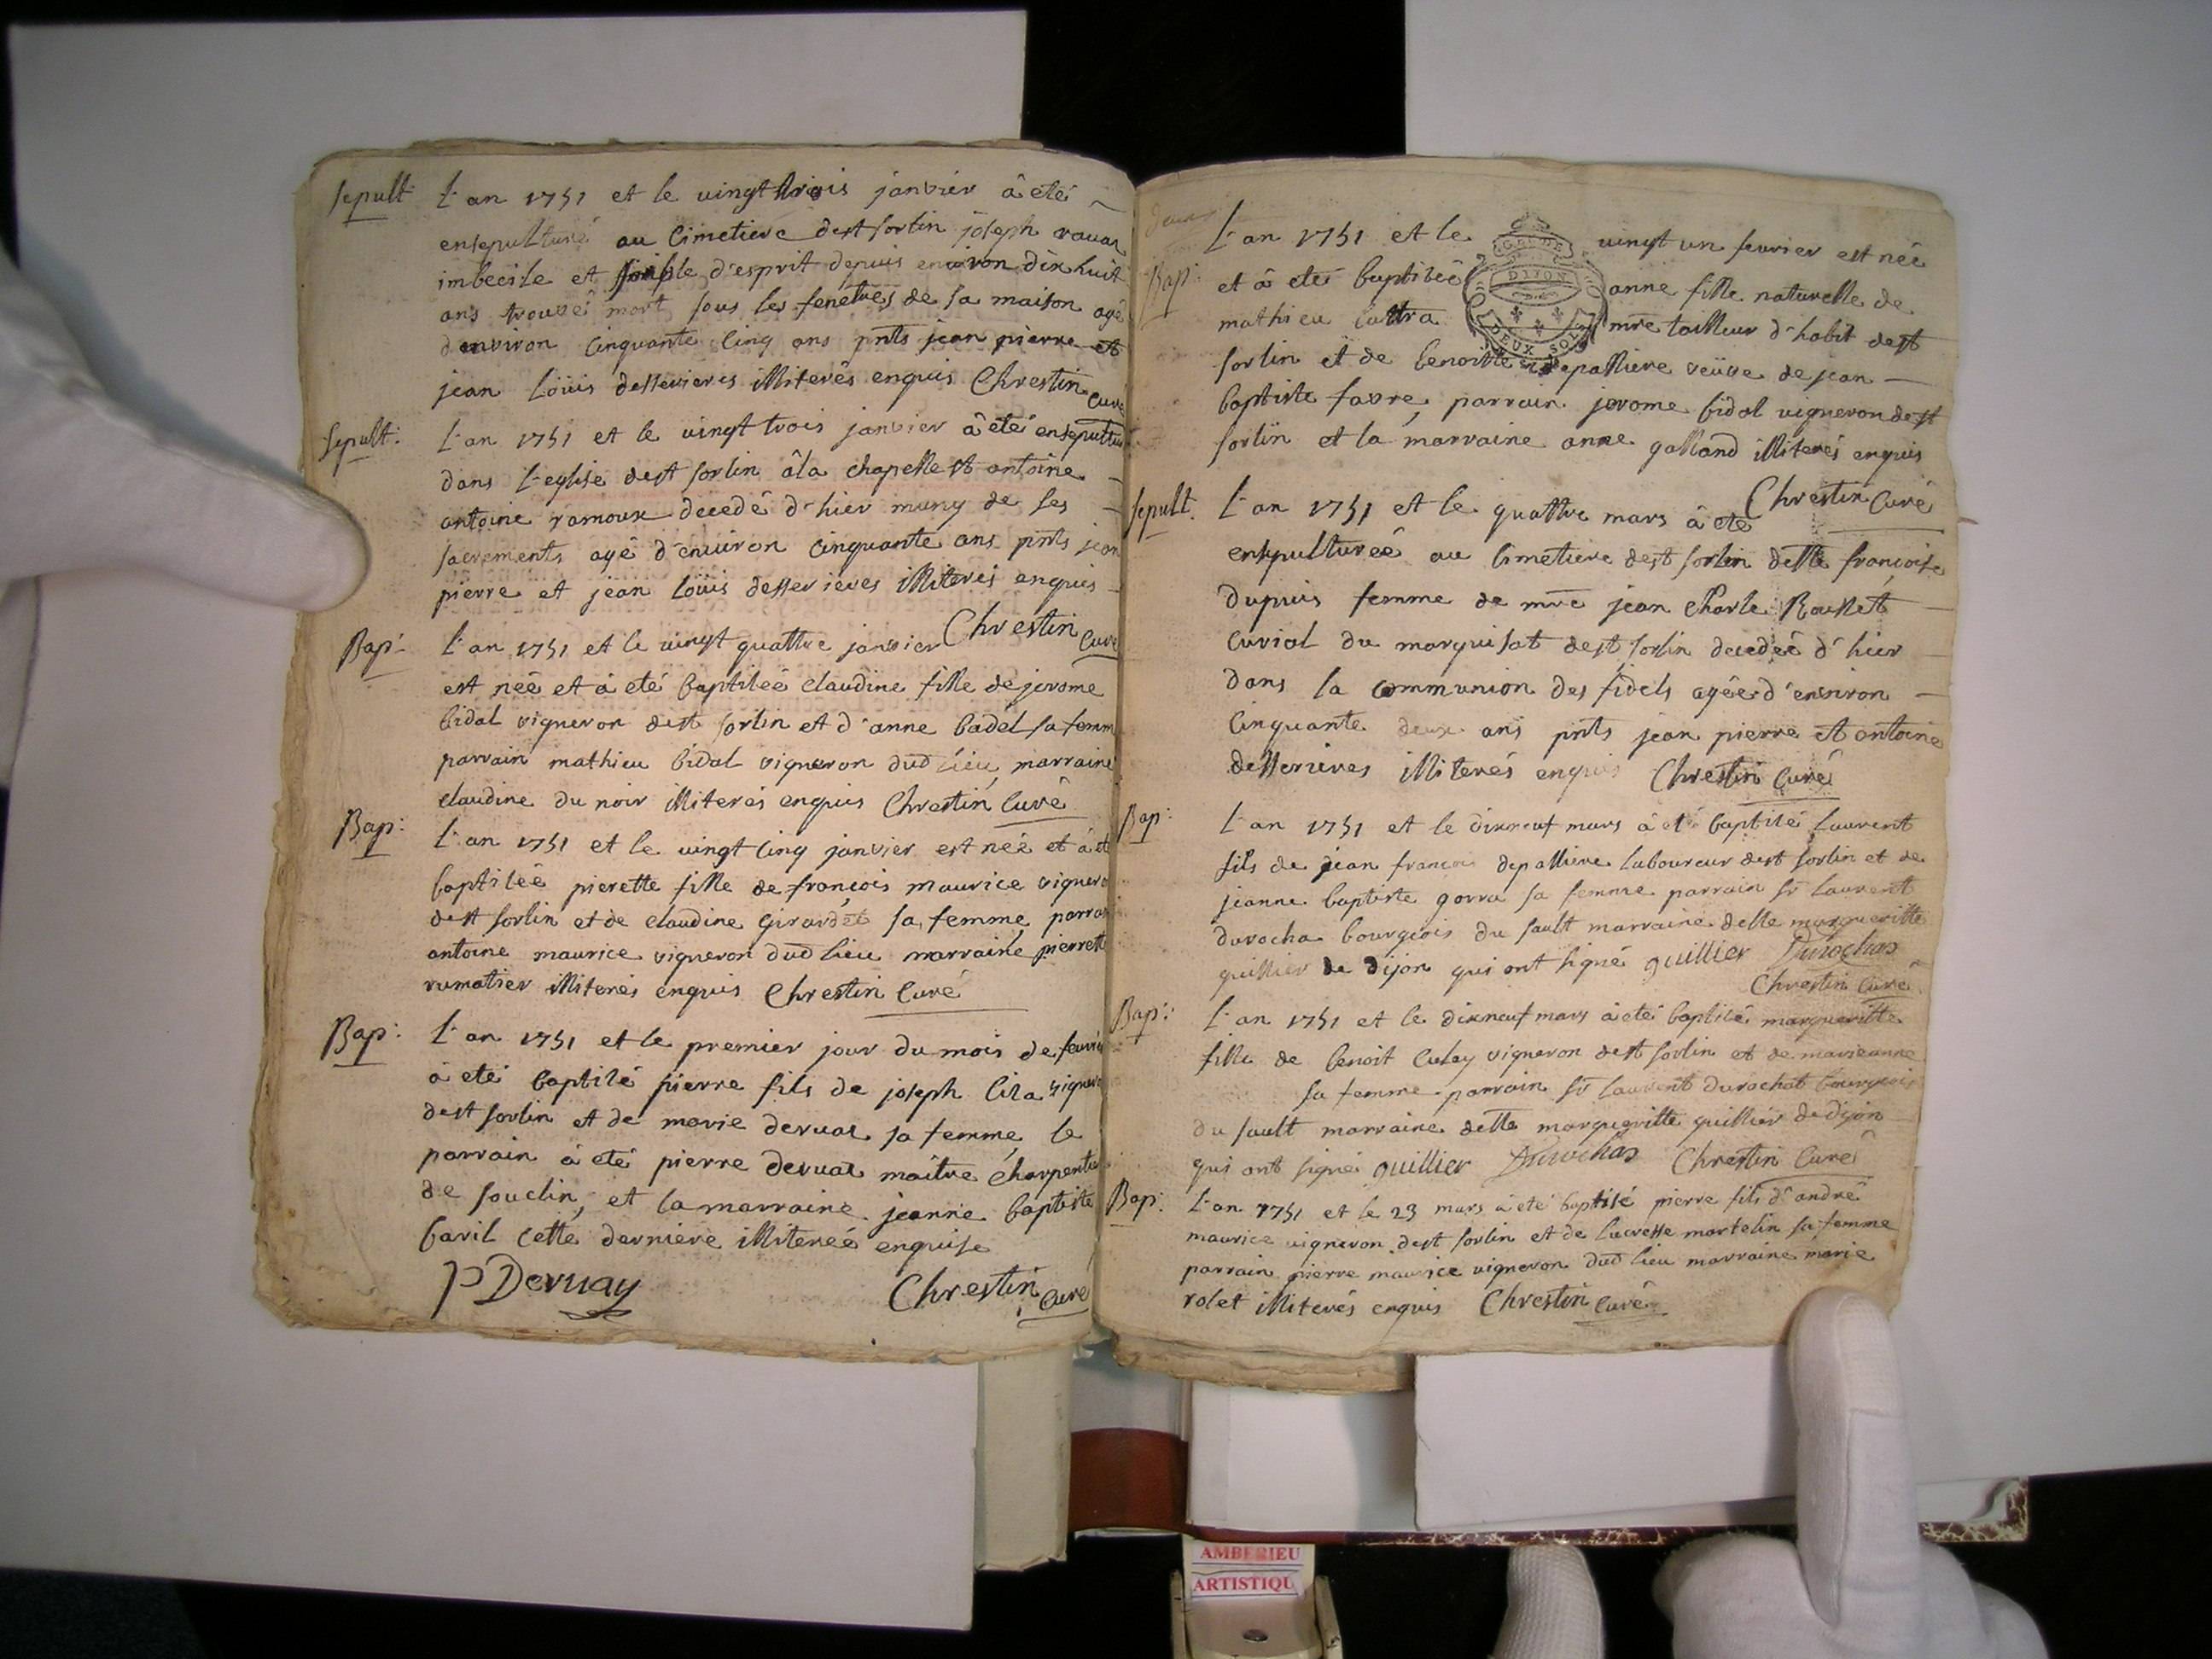 Sepult L'an 1751 et le vingt trois janvier â eté
ensepulturé au Cimetiere dest sorlin joseph ravat
imbecile et foible d'esprit depuis environ dix huit
ans trouvé mort sous les fenetres de sa maison agé
d'environ Cinquante Cinq ans pnts jean pierre et
jean Loüis desserieres illiterés enquis Chrestin Curé
Sepult: L'an 1751 et le vingt trois janvier â eté ensepultur
dans L'eglise dest sorlin âla chapelle st antoine
antoine ramoux decedé d'hier muny de ses
sacrements agé d'environ Cinquante ans pnts jean
pierre et jean Loüis desserieres illiterés enquis
Chrestin Curé
Bap: L'an 1751 et le vingt quattre janvier
est neé et â eté baptiseé claudine fille de jerome
bidal vigneron dest sorlin et d'anne badel sa femm
parrain mathieu bidal vigneron dud lieu, marraine
claudine du noir illiterés enquis Chrestin Curé
Bap: L'an 1751 et le vingt Cinq janvier est neé et â et
baptiseé pierette fille de françois maurice vignero
dest sorlin et de claudine Girardet sa femme, parrain
antoine maurice vigneron dud lieu marraine pierrett
rumatier illiterés enquis Chrestin Curé
Bap: L'an 1751 et le premier jour du mois de fevrier
â eté baptisé pierre fils de joseph Liza vignero
dest sorlin et de marie dervar sa femme, le
parrain â eté pierre dervar maître Charpentie
de souclin, et la marraine jeanne baptiste
baril cette derniere illitereé enquise
P Dervay Chrestin Curé
L'an 1751 et le vingt un fevrier est neé
Bap: et â eté baptiseé anne fille naturelle de
mathieu mre tailleur d'habit dest
sorlin et de benoitte depalliere veüve de jean
baptiste favre, parrain jerome bidal vigneron dest
sorlin et la marraine anne galland illiterés enquis
Chrestin Curé
G. DE
DIJON
DEUX SOLS
Sepult. L'an 1751 et le quattre mars â eté
ensepultureé au Cimetiere dest sorlin delle françoise
Dupuis femme de mre jean Charle Rousset
Curial du marquisat dest sorlin decedeé d'hier
dans la Communion des fidels ageé d'environ
Cinquante deux ans pnts jean pierre et antoine
desserieres illiterés enquis Chrestin Curé
Bap: L'an 1751 et le dixneuf mars â eté baptisé Laurent
fils de jean françois depalliere laboureur dest sorlin et de
jeanne baptiste gorra sa femme parrain sr laurent
durocha bourgeois du sault marraine delle margueritte
guillier de Dijon qui ont signé guillier Durochas
Chrestin Curé
Bap: L'an 1751 et le dixneuf mars â eté baptisé margueritte
fille de benoit Culay vigneron dest sorlin et de marieanne
sa femme parrain sr laurent durochat bourgeois
du sault marraine delle margueritte guillier de dijon
qui ont signé guillier Durochas Chrestin Curé
Bap: L'an 1751 et le 23 mars â eté baptisé pierre fils d'andré
maurice vigneron dest sorlin et de lucresse martelin sa femme
parrain pierre maurice vigneron dud lieu marraine marie
rolet illiterés enquis Chrestin Curé
AMBERIEU
ARTISTIQU